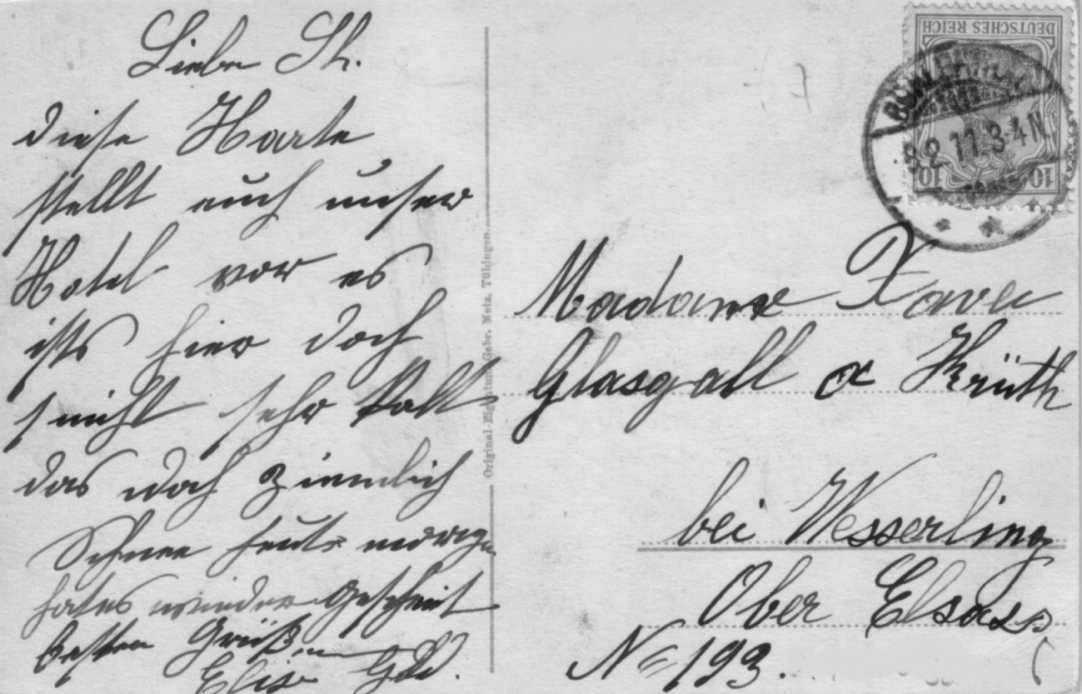 Liebe Th.
diese Karte
stellt euch unser
Hotel vor es
ists hier doch
nicht sehr kalt
das doch ziemlich
Schnee heute morgen
hat es wieder geschneit
besten Grüßen
Elise
DEUTSCHES REICH
10 10
8.2.11.3-4N.
Original-Eigentum Gebr. Metz, Tübingen.
Madame Xavier
Glasgall a Krüth
bei Wesserling
Ober Elsass
No 193.